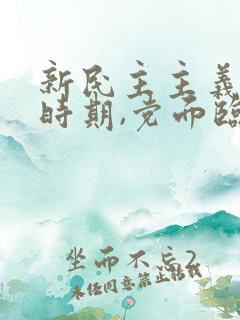 新民主主義
時期,党而臨
坐而不忘2
未经同意禁止转载